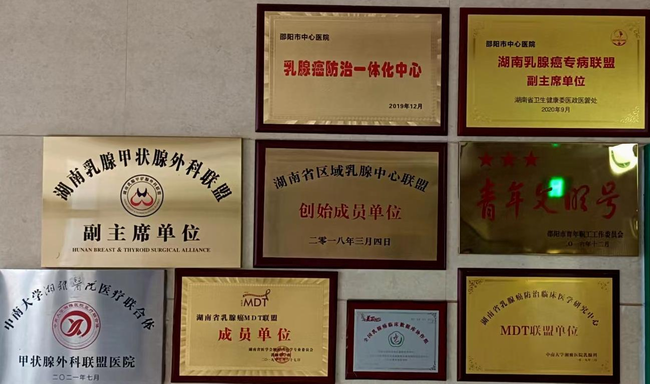 邵阳市中心医院
乳腺癌防治一体化中心
2019年12月
邵阳市中心医院
湖南乳腺癌专病联盟
副主席单位
湖南省卫生健康委医政医管处
2020年9月
湖南乳腺甲状腺外科联盟
副主席单位
HUNAN BREAST & THYROID SURGICAL ALLIANCE
湖南省区域乳腺中心联盟
创始成员单位
二〇一八年三月四日
青年文明号
中南大学湘雅医院医疗联合体
甲状腺外科联盟医院
二〇二一年七月
MDT
湖南省乳腺癌MDT联盟
成员单位
湖南省乳腺癌防治临床医学研究中心
MDT联盟单位